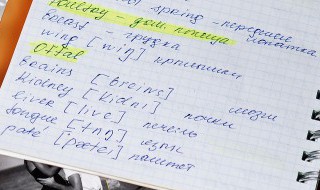 spring - передняя
лопатка
Poultry - дом. птица
breast - грудка
wing [wiŋ] крылышки
Offal
Brains [breins] мозги
Kidney [kidni] почки
liver [live] печень
tongue [tʌŋ] язык
paté [pætei] паштет